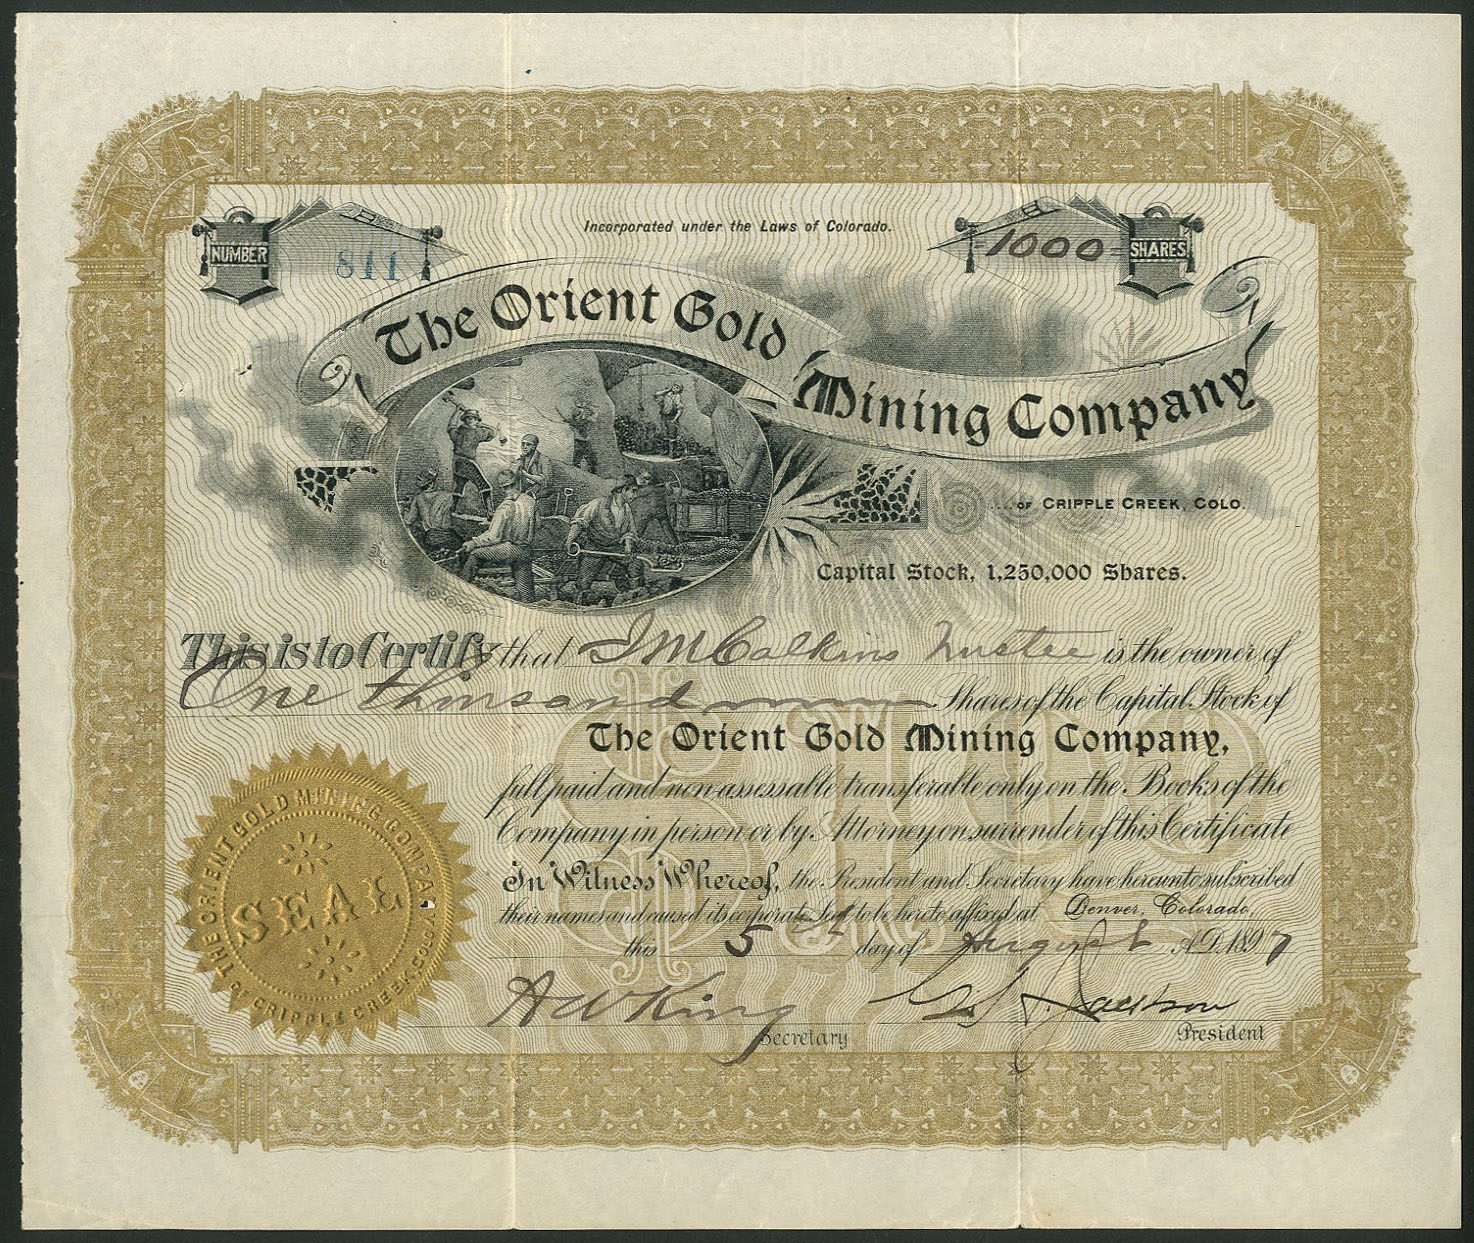 Incorporated under the Laws of Colorado.
NUMBER 811
-1000- SHARES
The Orient Gold Mining Company
OF CRIPPLE CREEK, COLO.
Capital Stock, 1,250,000 Shares.
This is to Certify that I M Calkins Trustee is the owner of
One thousand Shares of the Capital Stock of
The Orient Gold Mining Company,
full paid and non assessable transferable only on the Books of the
Company in person or by Attorney on surrender of this Certificate
In Witness Whereof, the President and Secretary have hereunto subscribed
their names and caused its corporate Seal to be hereto affixed at Denver, Colorado,
this 5th day of August A.D. 1897
A W King
Secretary
Jackson
President
THE ORIENT GOLD MINING COMPANY
OF CRIPPLE CREEK, COLO.
SEAL